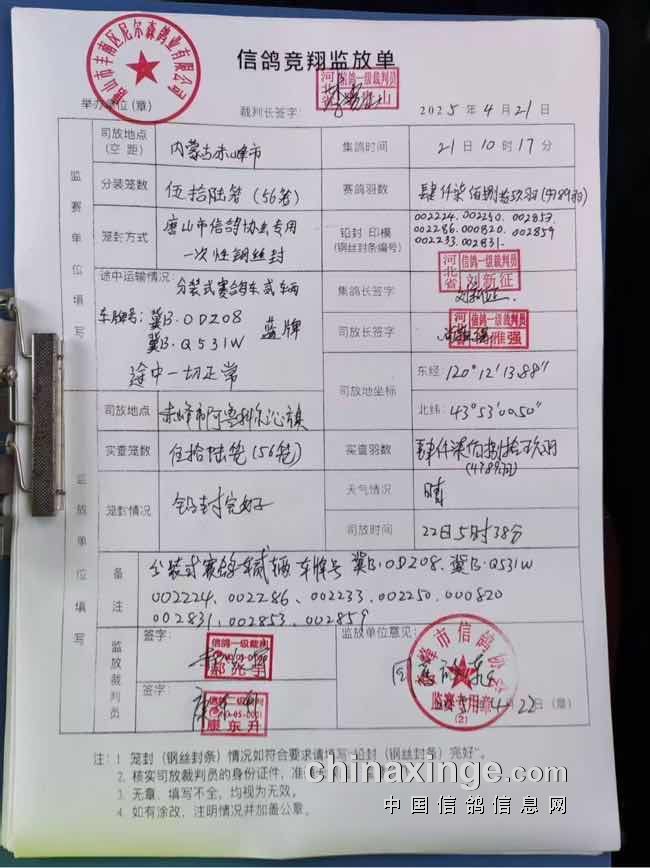 信鸽竞翔监放单
唐山市丰南区尼尔森鸽业有限公司
举办单位(章) 裁判长签字: 2025年4月21日
监赛单位填写
司放地点(空距) 内蒙古赤峰市 集鸽时间 21日10时17分
分装笼数 伍拾陆笼(56笼) 赛鸽羽数 肆仟柒佰捌拾玖羽(4789羽)
笼封方式 唐山市信鸽协会专用 一次性钢丝封
铅封 印模(钢丝封条编号)
002224. 002250. 002853.
002286. 000820. 002859
002233. 002831.
途中运输情况: 分装式赛鸽车贰车两
车牌号: 冀B·0DZ08 蓝牌
冀B·Q531W
途中一切正常
集鸽长签字 河北省 信鸽一级裁判员 刘新征
司放长签字 信鸽一级裁判员
司放地坐标
东经: 120°12′13.88″
北纬: 43°53′00.50″
监放单位填写
司放地点 赤峰市阿鲁科尔沁旗
实查笼数 伍拾陆笼(56笼) 实查羽数 肆仟柒佰捌拾玖羽(4789羽)
笼封情况 铅封完好 天气情况 晴
司放时间 22日5时38分
备注 分装式赛鸽车贰辆 车牌号 冀B·0DZ08. 冀B·Q531W
002224. 002286. 002233. 002250. 000820
002831. 002853. 002859
监放裁判员
签字: 信鸽一级裁判
签字: 康东升
监放单位意见:
市信鸽协会
监赛专用章
(2)
4.22(章)
注: 1. 笼封(钢丝封条)情况如符合要求请填写“铅封(钢丝封条)完好”。
2. 核实司放裁判员的身份证件,准
3. 无章、填写不全,均视为无效。
4. 如有涂改,注明情况并加盖公章。
chinaxinge.com
中国信鸽信息网